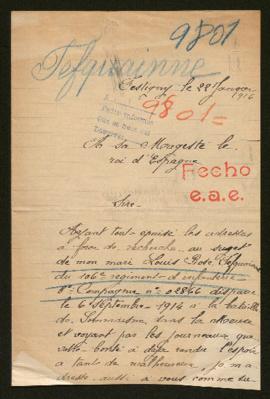 9801
Tefquainne
le 22 Janvier
1916
9801=
A Sa Majesté le
roi d'Espagne
Fecho
e.a.e.
Sire
Ayant tant épuisé les adresses
à force de recherche au sujet
de mon mari Louis
du 106e regiment d'infanterie
Compagnie n° 02866 disparu
le 6 Septembre 1914 à la bataille
de dans la Meuse
et voyant par les journeaux que
votre bonté a déjà rendu l'espoir
a tant de malheureux, je m'a
dresse aussi a vous comme